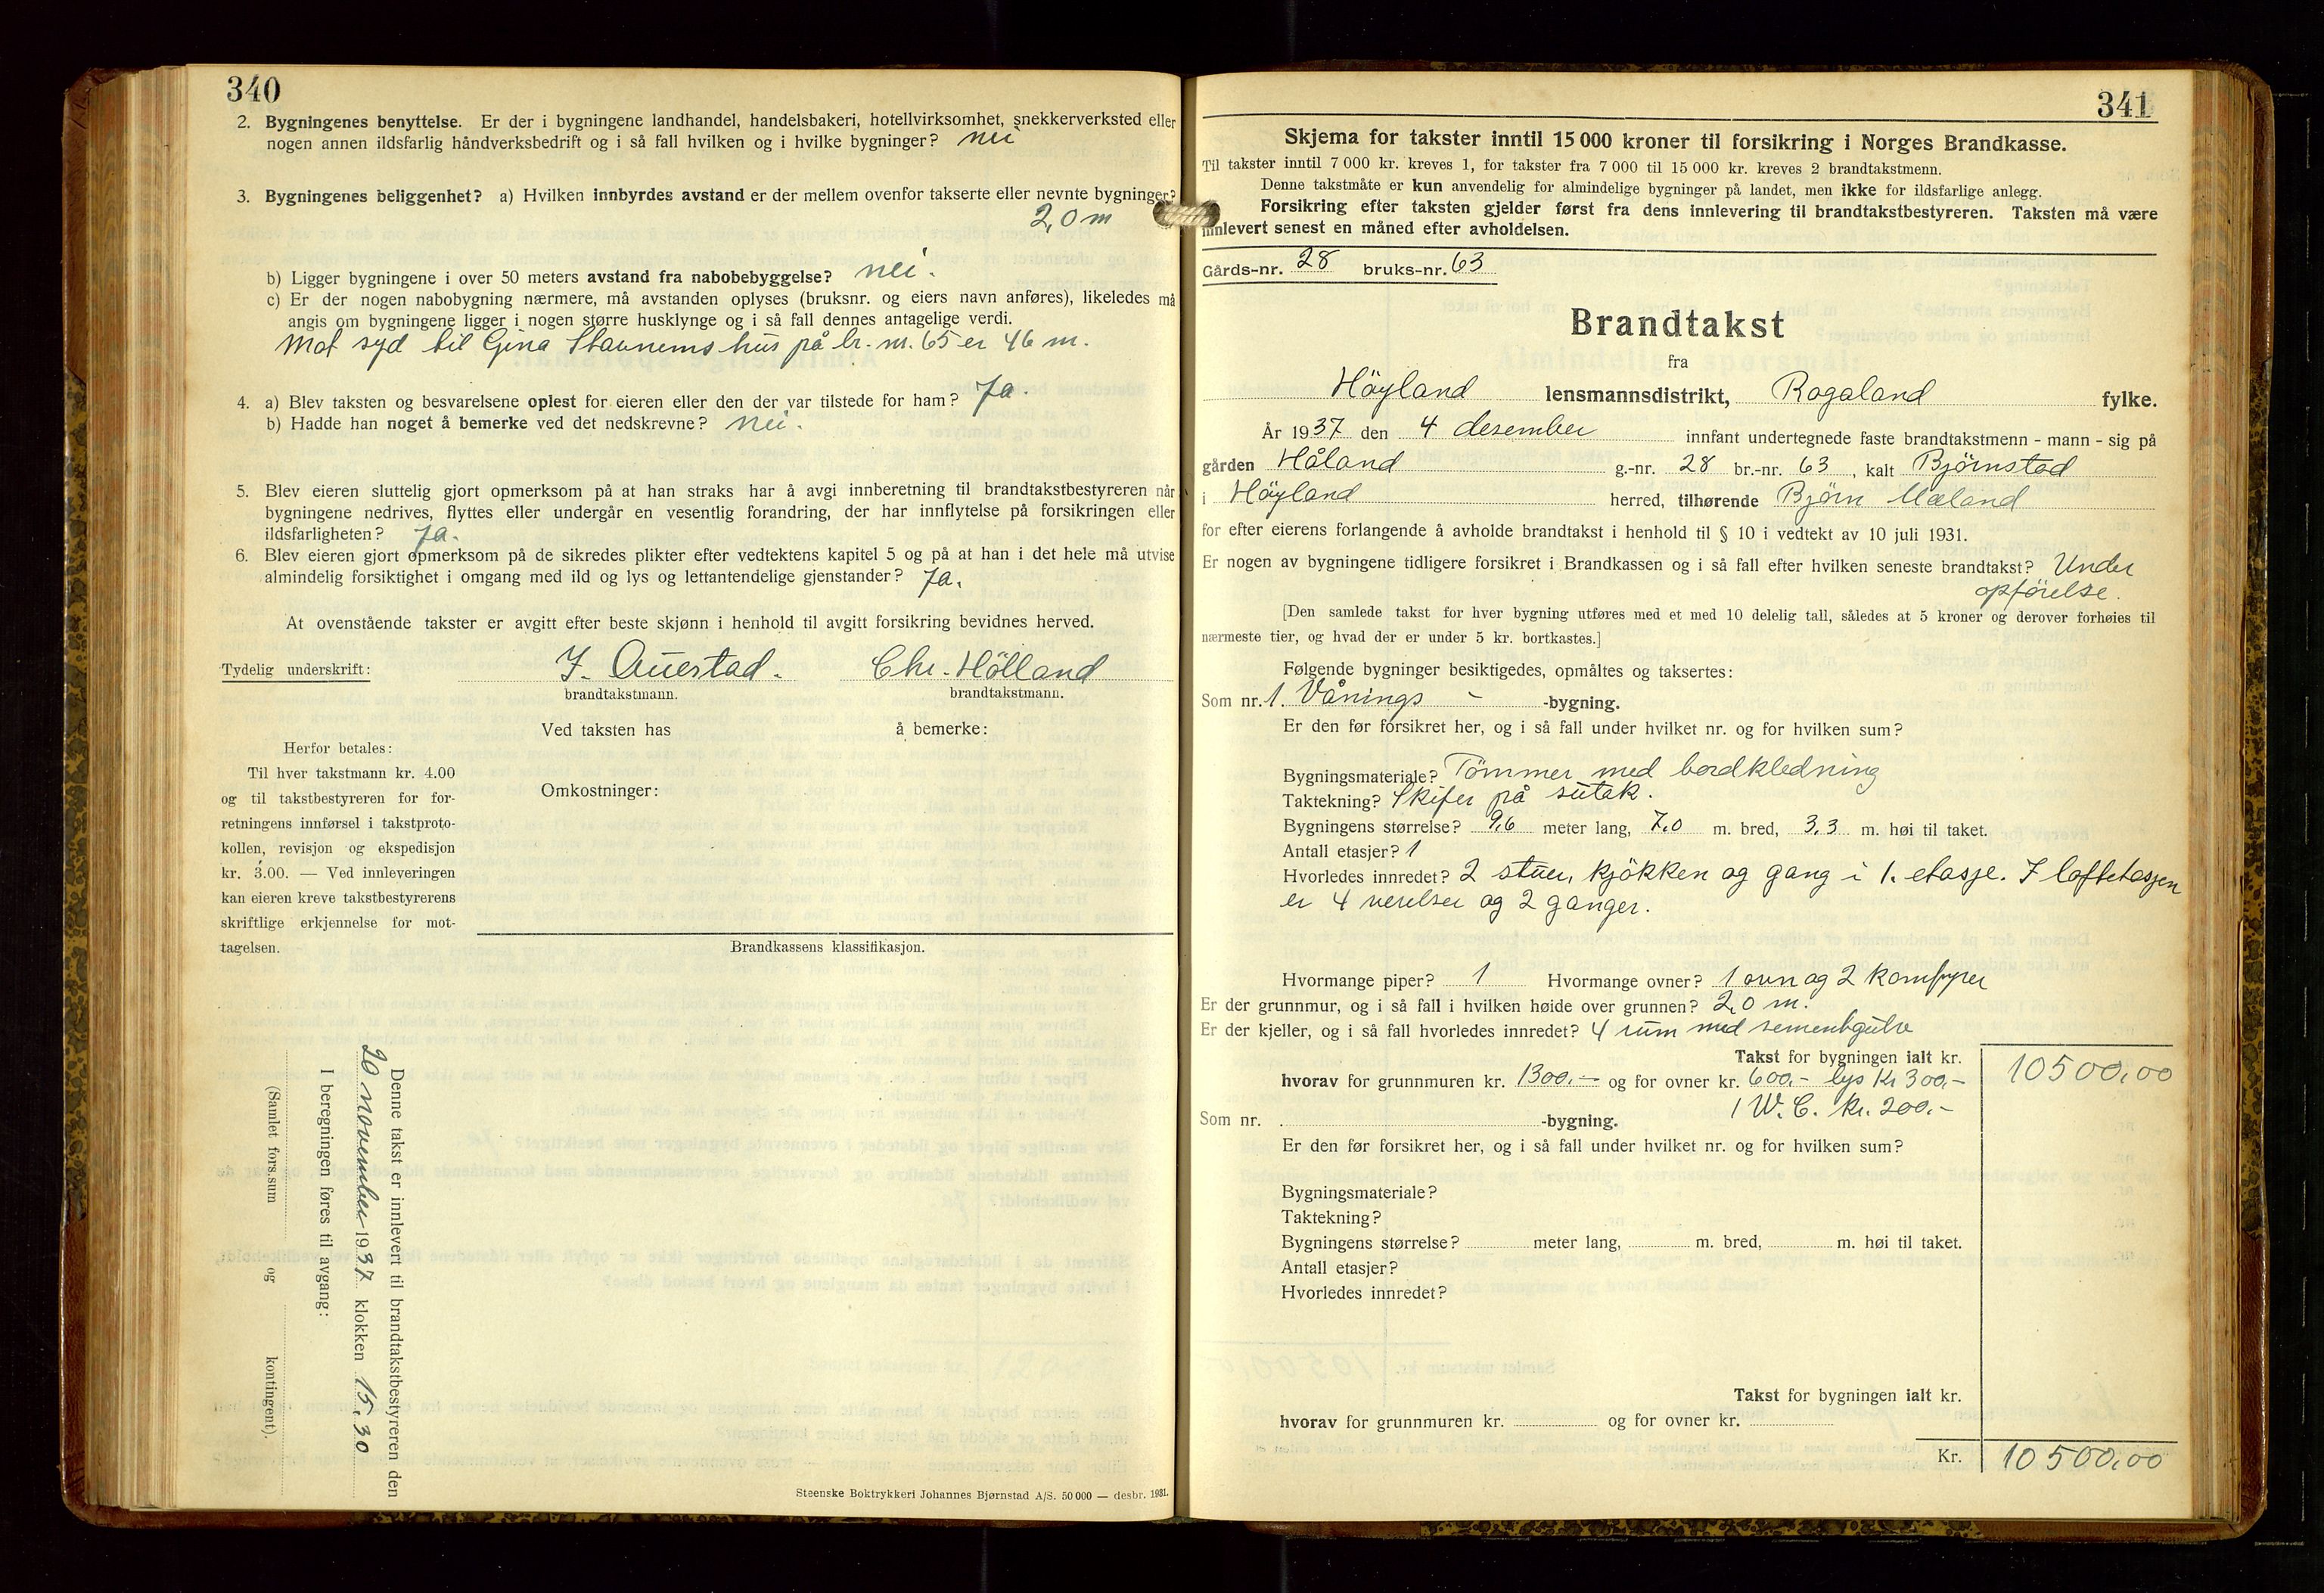 340
2. Bygningenes benyttelse. Er der i bygningene landhandel, handelsbakeri, hotellvirksomhet, snekkerverksted eller
nogen annen ildsfarlig håndverksbedrift og i så fall hvilken og i hvilke bygninger? nei
3. Bygningenes beliggenhet? a) Hvilken innbyrdes avstand er der mellem ovenfor takserte eller nevnte bygninger?
2,0 m
b) Ligger bygningene i over 50 meters avstand fra nabobebyggelse? nei.
c) Er der nogen nabobygning nærmere, må avstanden oplyses (bruksnr. og eiers navn anføres), likeledes må
angis om bygningene ligger i nogen større husklynge og i så fall dennes antagelige verdi.
Mot syd til Gina Staunems hus på br. nr. 65 er 46 m.
4. a) Blev taksten og besvarelsene oplest for eieren eller den der var tilstede for ham? Ja.
b) Hadde han noget å bemerke ved det nedskrevne? nei.
5. Blev eieren sluttelig gjort opmerksom på at han straks har å avgi innberetning til brandtakstbestyreren når
bygningene nedrives, flyttes eller undergår en vesentlig forandring, der har innflytelse på forsikringen eller
ildsfarligheten? Ja.
6. Blev eieren gjort opmerksom på de sikredes plikter efter vedtektens kapitel 5 og på at han i det hele må utvise
almindelig forsiktighet i omgang med ild og lys og lettantendelige gjenstander? Ja.
At ovenstående takster er avgitt efter beste skjønn i henhold til avgitt forsikring bevidnes herved.
Tydelig underskrift: J. Auestad. Chr. Hölland
brandtakstmann. brandtakstmann.
Ved taksten has å bemerke:
Herfor betales:
Til hver takstmann kr. 4.00
og til takstbestyreren for for-
retningens innførsel i takstproto-
kollen, revisjon og ekspedisjon
kr. 3.00. — Ved innleveringen
kan eieren kreve takstbestyrerens
skriftlige erkjennelse for mot-
tagelsen.
Omkostninger:
Brandkassens klassifikasjon.
Denne takst er innlevert til brandtakstbestyreren den
20 november 1937 klokken 15,30
I beregningen føres til avgang:
(Samlet fors.sum og kontingent).
Steenske Boktrykkeri Johannes Bjørnstad A/S. 50 000 — desbr. 1931.
341
Skjema for takster inntil 15 000 kroner til forsikring i Norges Brandkasse.
Til takster inntil 7 000 kr. kreves 1, for takster fra 7 000 til 15 000 kr. kreves 2 brandtakstmenn.
Denne takstmåte er kun anvendelig for almindelige bygninger på landet, men ikke for ildsfarlige anlegg.
Forsikring efter taksten gjelder først fra dens innlevering til brandtakstbestyreren. Taksten må være
innlevert senest en måned efter avholdelsen.
Gårds-nr. 28 bruks-nr. 63
Brandtakst
fra
Höyland lensmannsdistrikt, Rogaland fylke.
År 1937 den 4 desember innfant undertegnede faste brandtakstmenn - mann - sig på
gården Håland g.-nr. 28 br.-nr. 63, kalt Björnstad
i Höyland herred, tilhørende Björn Mæland
for efter eierens forlangende å avholde brandtakst i henhold til § 10 i vedtekt av 10 juli 1931.
Er nogen av bygningene tidligere forsikret i Brandkassen og i så fall efter hvilken seneste brandtakst? Under
opförelse.
[Den samlede takst for hver bygning utføres med et med 10 delelig tall, således at 5 kroner og derover forhøies til
nærmeste tier, og hvad der er under 5 kr. bortkastes.]
Følgende bygninger besiktigedes, opmåltes og taksertes:
Som nr. 1. Vånings - -bygning.
Er den før forsikret her, og i så fall under hvilket nr. og for hvilken sum?
Bygningsmateriale? Tömmer med bordkledning
Taktekning? Skifer på sutak.
Bygningens størrelse? 9,6 meter lang, 7,0 m. bred, 3,3 m. høi til taket.
Antall etasjer? 1
Hvorledes innredet? 2 stuer, kjökken og gang i 1. etasje. I loftetasjen
er 4 verelser og 2 ganger.
Hvormange piper? 1 Hvormange ovner? 1 ovn og 2 komfyrer
Er der grunnmur, og i så fall i hvilken høide over grunnen? 2,0 m.
Er der kjeller, og i så fall hvorledes innredet? 4 rum med sementgulv
Takst for bygningen ialt kr. 10500,00
hvorav for grunnmuren kr. 1300.- og for ovner kr. 600,- lys Kr 300,-
1 W.C. kr. 200.-
Som nr. -bygning.
Er den før forsikret her, og i så fall under hvilket nr. og for hvilken sum?
Bygningsmateriale?
Taktekning?
Bygningens størrelse? meter lang, m. bred, m. høi til taket.
Antall etasjer?
Hvorledes innredet?
Takst for bygningen ialt kr.
hvorav for grunnmuren kr. og for ovner kr.
Kr. 10500,00